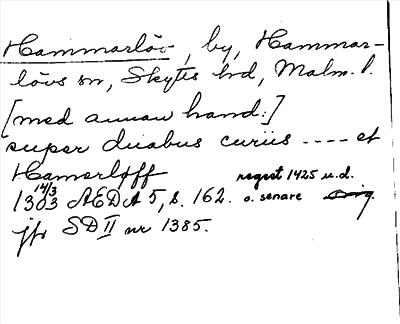 Hammarlöv, by, Hammar-
lövs sn, Skytts hd, Malm. l.
[med annan hand:]
super duabus curiis ---- et
Hamerløff
14/3 1303 AEDA 5, s. 162. regest 1425 u.d. o. senare orig.
jfr SD II nr 1385.